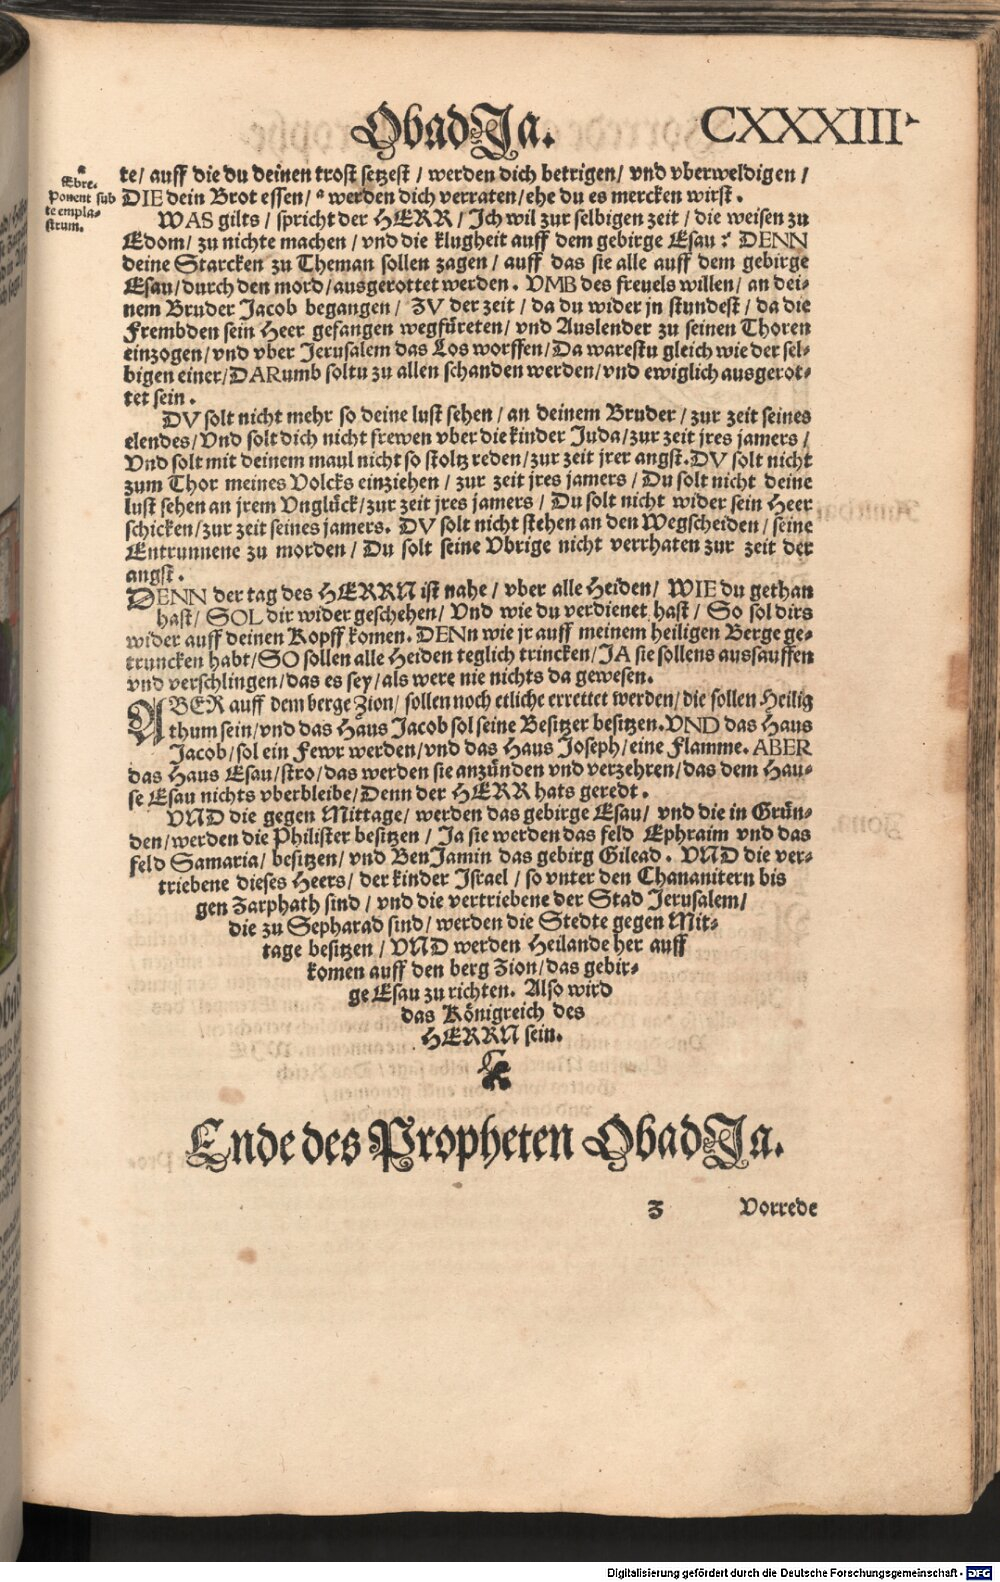 ObadJa. CXXXIII.
a
Ebre.
Ponent sub
te empla-
strum.
te/ auff die du deinen trost setzest / werden dich betrigen/ vnd vberweldigen /
DIE dein Brot essen/ ª werden dich verraten/ehe du es mercken wirst.
WAS gilts / spricht der HERR / Ich wil zur selbigen zeit / die weisen zu
Edom/ zu nichte machen / vnd die klugheit auff dem gebirge Esau: DENN
deine Starcken zu Theman sollen zagen/ auff das sie alle auff dem gebirge
Esau/durch den mord/ausgerottet werden. VMB des freuels willen/ an dei-
nem Bruder Jacob begangen / ZV der zeit / da du wider jn stundest / da die
Frembden sein Heer gefangen wegfüreten/ vnd Auslender zu seinen Thoren
einzogen/vnd vber Jerusalem das Los worffen/Da warestu gleich wie der sel-
bigen einer/DARumb soltu zu allen schanden werden/vnd ewiglich ausgerot-
tet sein.
DV solt nicht mehr so deine lust sehen/ an deinem Bruder / zur zeit seines
elendes/Vnd solt dich nicht frewen vber die kinder Juda/zur zeit jres jamers /
Vnd solt mit deinem maul nicht so stoltz reden/zur zeit jrer angst.DV solt nicht
zum Thor meines Volcks einziehen / zur zeit jres jamers / Du solt nicht deine
lust sehen an jrem Vnglück/zur zeit jres jamers / Du solt nicht wider sein Heer
schicken/zur zeit seines jamers. DV solt nicht stehen an den Wegscheiden/ seine
Entrunnene zu morden/ Du solt seine Vbrige nicht verrhaten zur zeit der
angst.
DENN der tag des HERRN ist nahe / vber alle Heiden/ WIE du gethan
hast/ SOL dir wider geschehen/ Vnd wie du verdienet hast/ So sol dirs
wider auff deinen Kopff komen. DENn wie jr auff meinem heiligen Berge ge-
truncken habt/SO sollen alle Heiden teglich trincken/JA sie sollens aussauffen
vnd verschlingen/das es sey/als were nie nichts da gewesen.
ABER auff dem berge Zion/ sollen noch etliche errettet werden/die sollen Heilig
thum sein/vnd das Haus Jacob sol seine Besitzer besitzen.VND das Haus
Jacob/sol ein Fewr werden/vnd das Haus Joseph/eine Flamme. ABER
das Haus Esau/stro/das werden sie anzünden vnd verzehren/das dem Hau-
se Esau nichts vberbleibe/Denn der HERR hats geredt.
VND die gegen Mittage/ werden das gebirge Esau/ vnd die in Grün-
den/werden die Philister besitzen / Ja sie werden das feld Ephraim vnd das
feld Samaria/ besitzen/ vnd BenJamin das gebirg Gilead. VND die ver-
triebene dieses Heers/ der kinder Israel / so vnter den Chananitern bis
gen Zarphath sind / vnd die vertriebene der Stad Jerusalem/
die zu Sepharad sind/ werden die Stedte gegen Mit-
tage besitzen / VND werden Heilande her auff
komen auff den berg Zion/das gebir-
ge Esau zu richten. Also wird
das Königreich des
HERRN sein.
Ende des Propheten ObadJa.
Z Vorrede
Digitalisierung gefördert durch die Deutsche Forschungsgemeinschaft - DFG